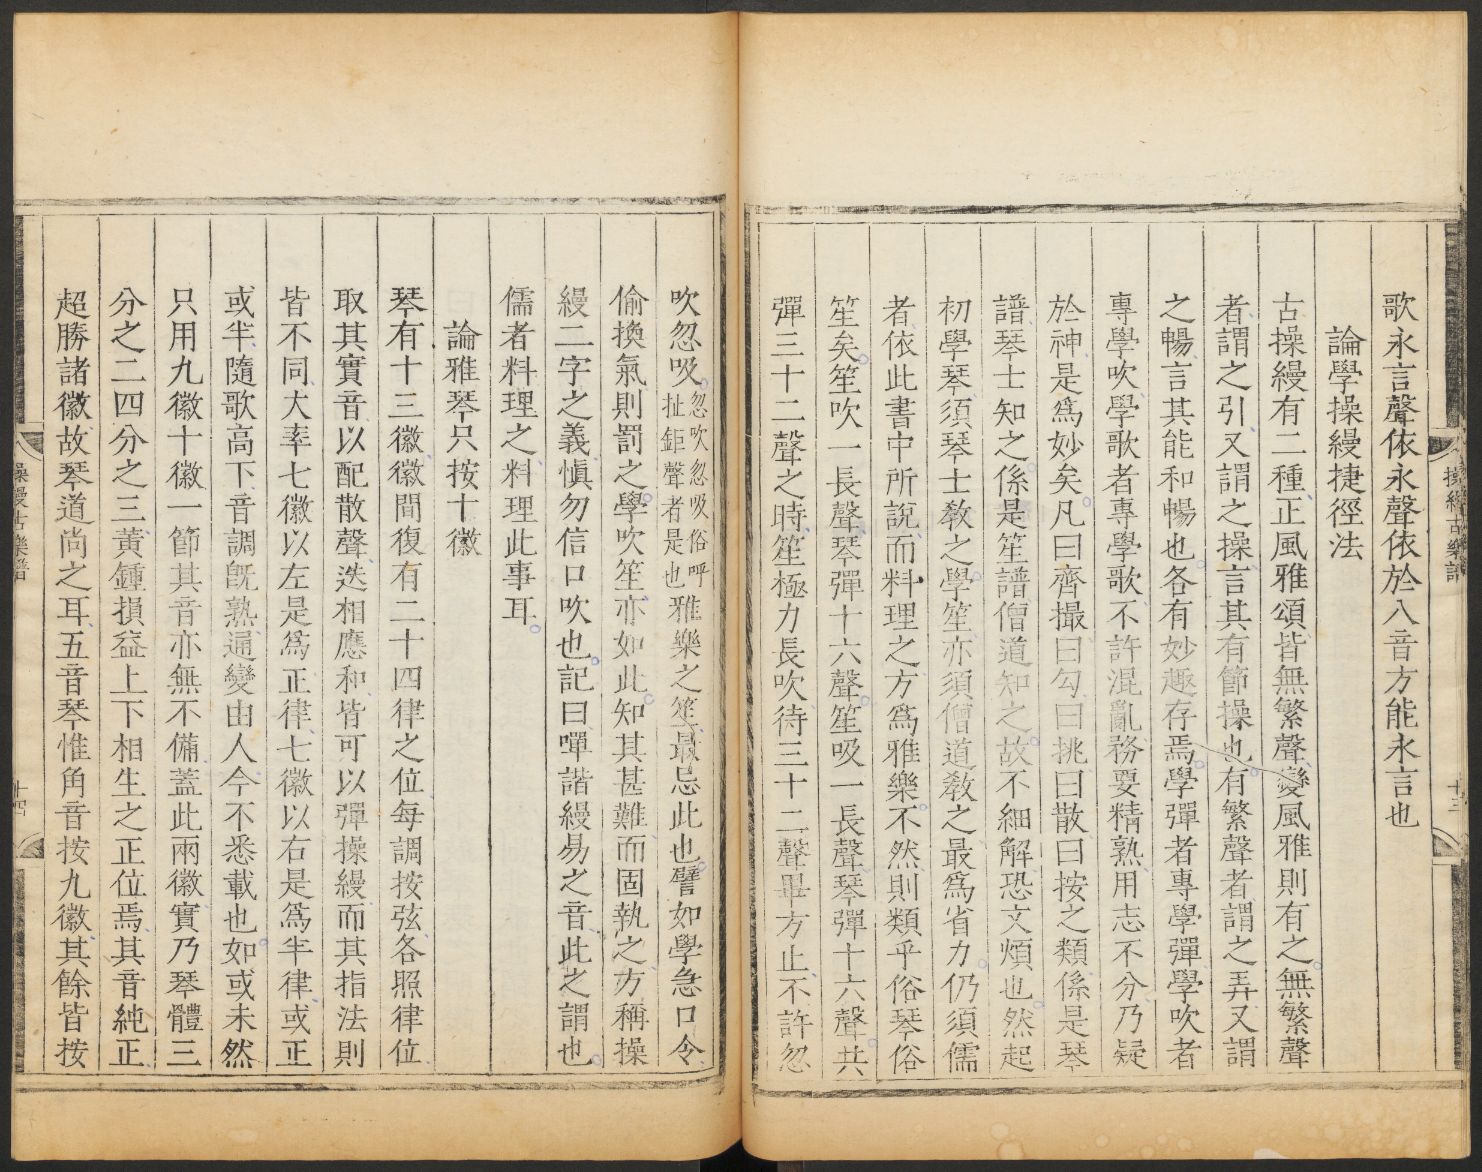 歌永言聲依永聲依於八音方能永言也
論學操縵捷徑法
古操縵有二種正風雅頌皆無繁聲變風雅則有之無繁聲
者謂之引又謂之操言其有節操也有繁聲者謂之弄又謂
之暢言其能和暢也各有妙趣存焉學彈者專學彈學吹者
專學吹學歌者專學歌不許混亂務要精熟用志不分乃疑
於神是爲妙矣凡曰齊撮曰勾曰挑曰散曰按之類係是琴
譜琴士知之係是笙譜僧道知之故不細解恐文煩也然起
初學琴須琴士教之學笙亦須僧道教之最爲省力仍須儒
者依此書中所說而料理之方爲雅樂不然則類乎俗琴俗
笙矣笙吹一長聲琴彈十六聲笙吸一長聲琴彈十六聲共
彈三十二聲之時笙極力長吹待三十二聲畢方止不許忽
操縵古樂譜
十三
吹忽吸忽吹忽吸俗呼扯鉅聲者是也雅樂之笙最忌此也譬如學急口令
偷換氣則罰之學吹笙亦如此知其甚難而固執之方稱操
縵二字之義愼勿信口吹也記曰嘽諧縵易之音此之謂也
儒者料理之料理此事耳
論雅琴只按十徽
琴有十三徽徽間復有二十四律之位每調按弦各照律位
取其實音以配散聲迭相應和皆可以彈操縵而其指法則
皆不同大率七徽以左是爲正律七徽以右是爲半律或正
或半隨歌高下音調旣熟通變由人今不悉載也如或未然
只用九徽十徽一節其音亦無不備蓋此兩徽實乃琴體三
分之二四分之三黃鍾損益上下相生之正位焉其音純正
超勝諸徽故琴道尚之耳五音琴惟角音按九徽其餘皆按
操縵古樂譜
十四